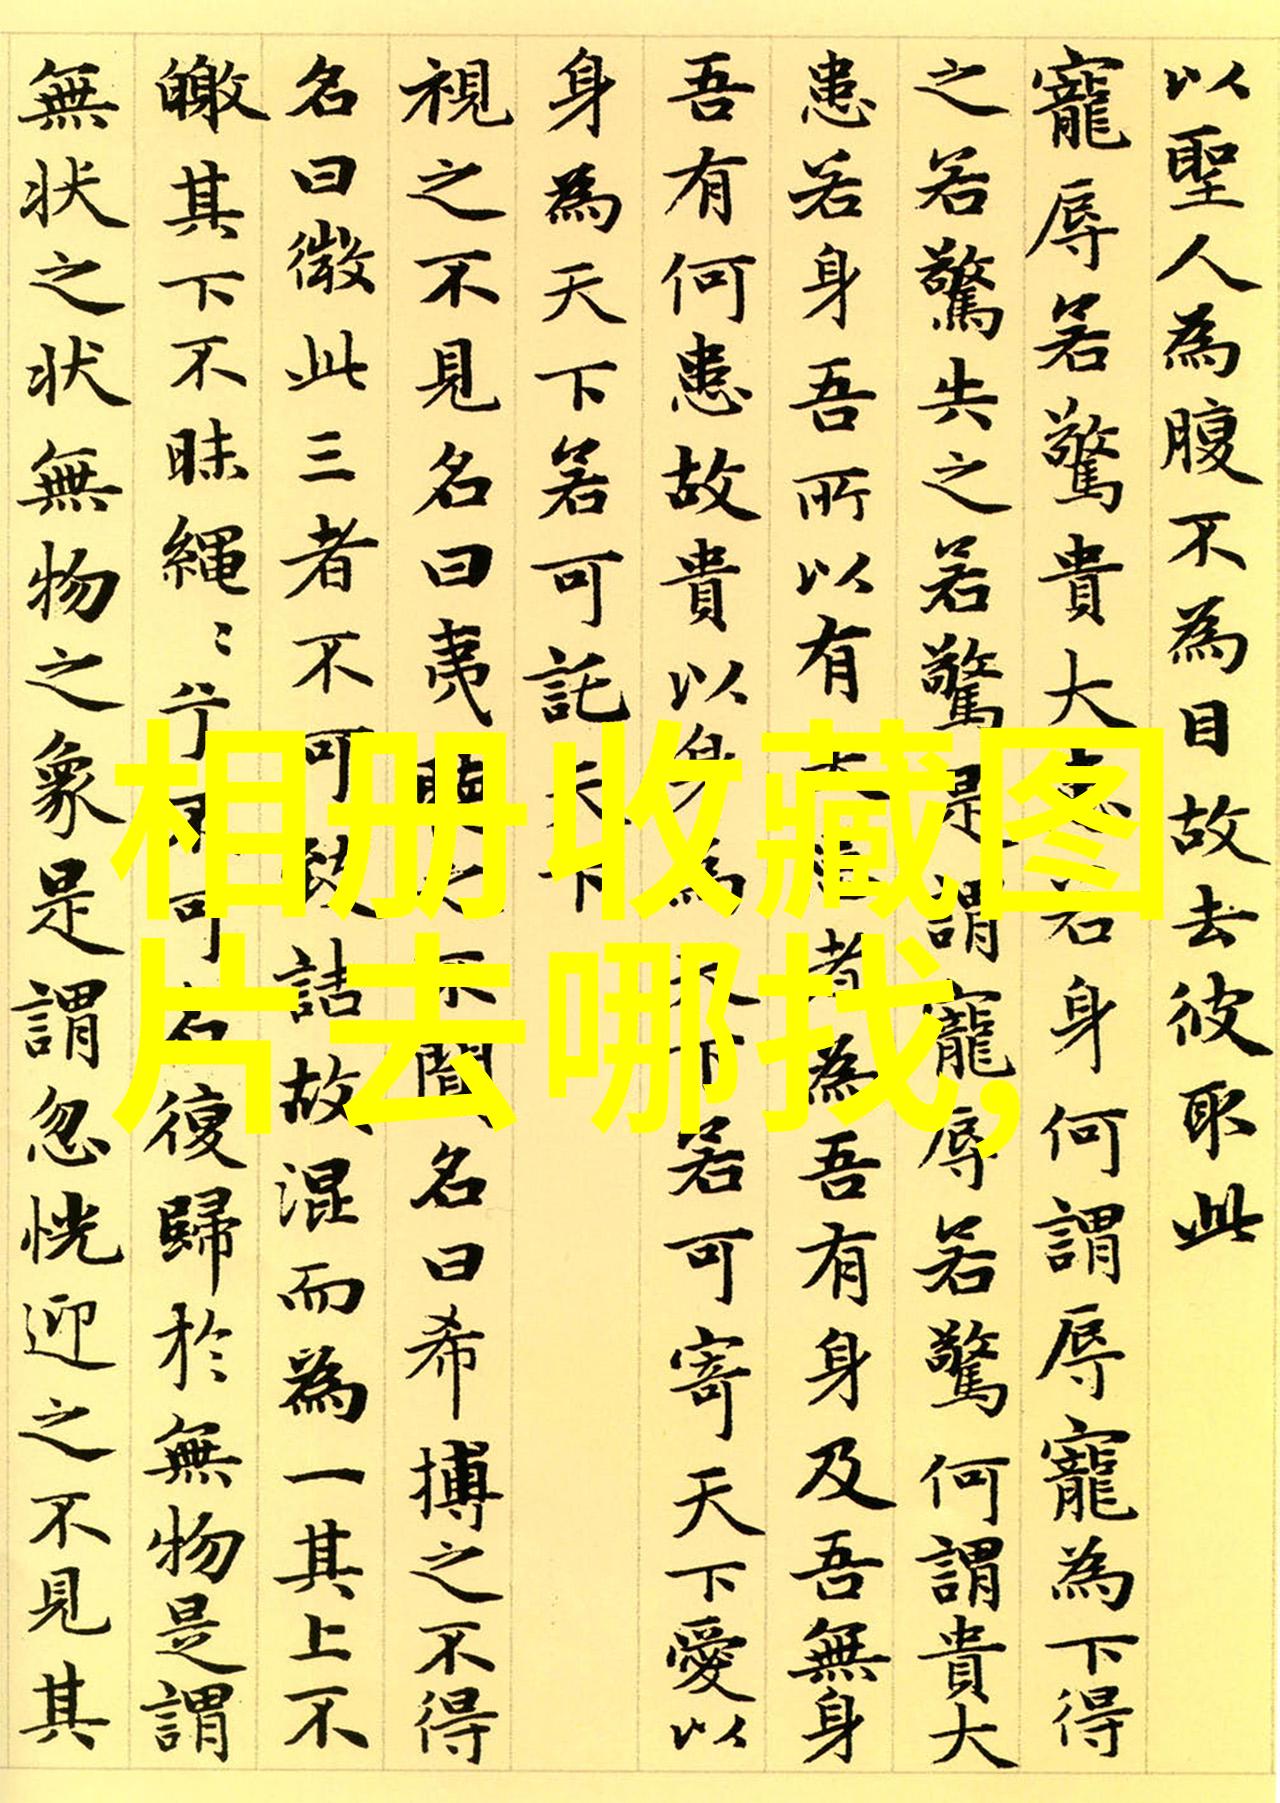 以聖人為腹不為目故去彼取此
寵辱若驚貴大患若身何謂辱寵為下得
之若驚失之若驚是謂寵辱若驚何謂貴大
患若身吾所以有大患者為吾有身及吾無身
吾有何患故貴以身為天下若可寄天下愛以
身為天下若可託天下
視之不見名曰夷聽之不聞名曰希搏之不得
名曰微此三者不可致詰故混而為一其上不
皦其下不昧繩〻兮可名復歸於無物是謂
無状之状無物之象是謂忽恍迎之不見其
相册收藏图
片去哪找,